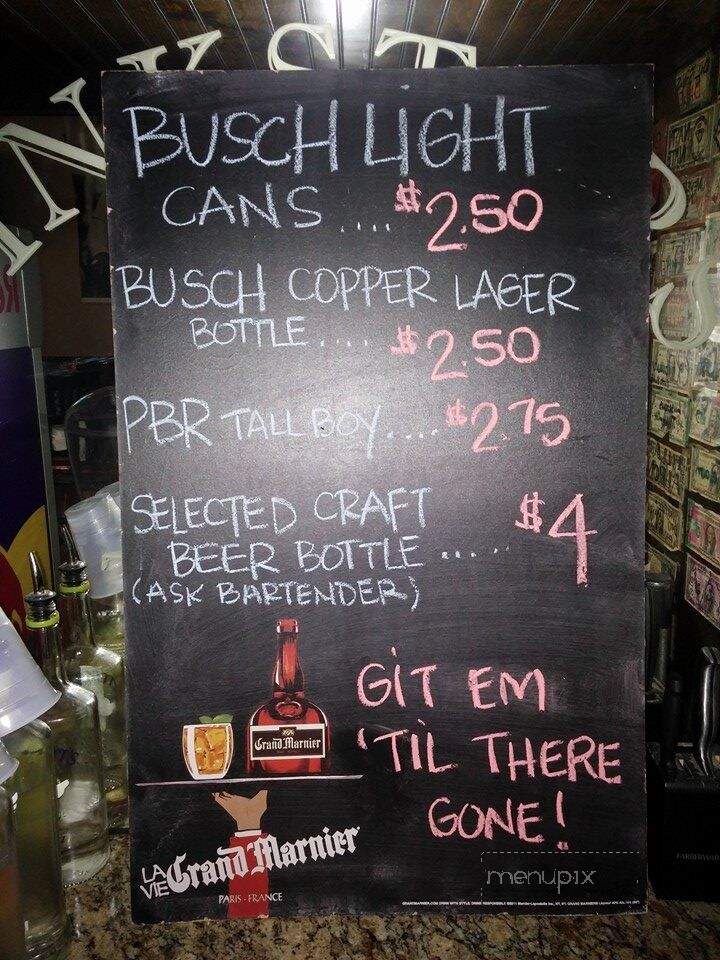 BUSCH LIGHT
CANS .... $2.50
BUSCH COPPER LAGER
BOTTLE.... $2.50
PBR TALLBOY.... $2.75
SELECTED CRAFT
BEER BOTTLE ..... $4
(ASK BARTENDER)
GIT EM
'TIL THERE
GONE!
Grand Marnier
LA
VIE Grand Marnier
PARIS - FRANCE
menupix